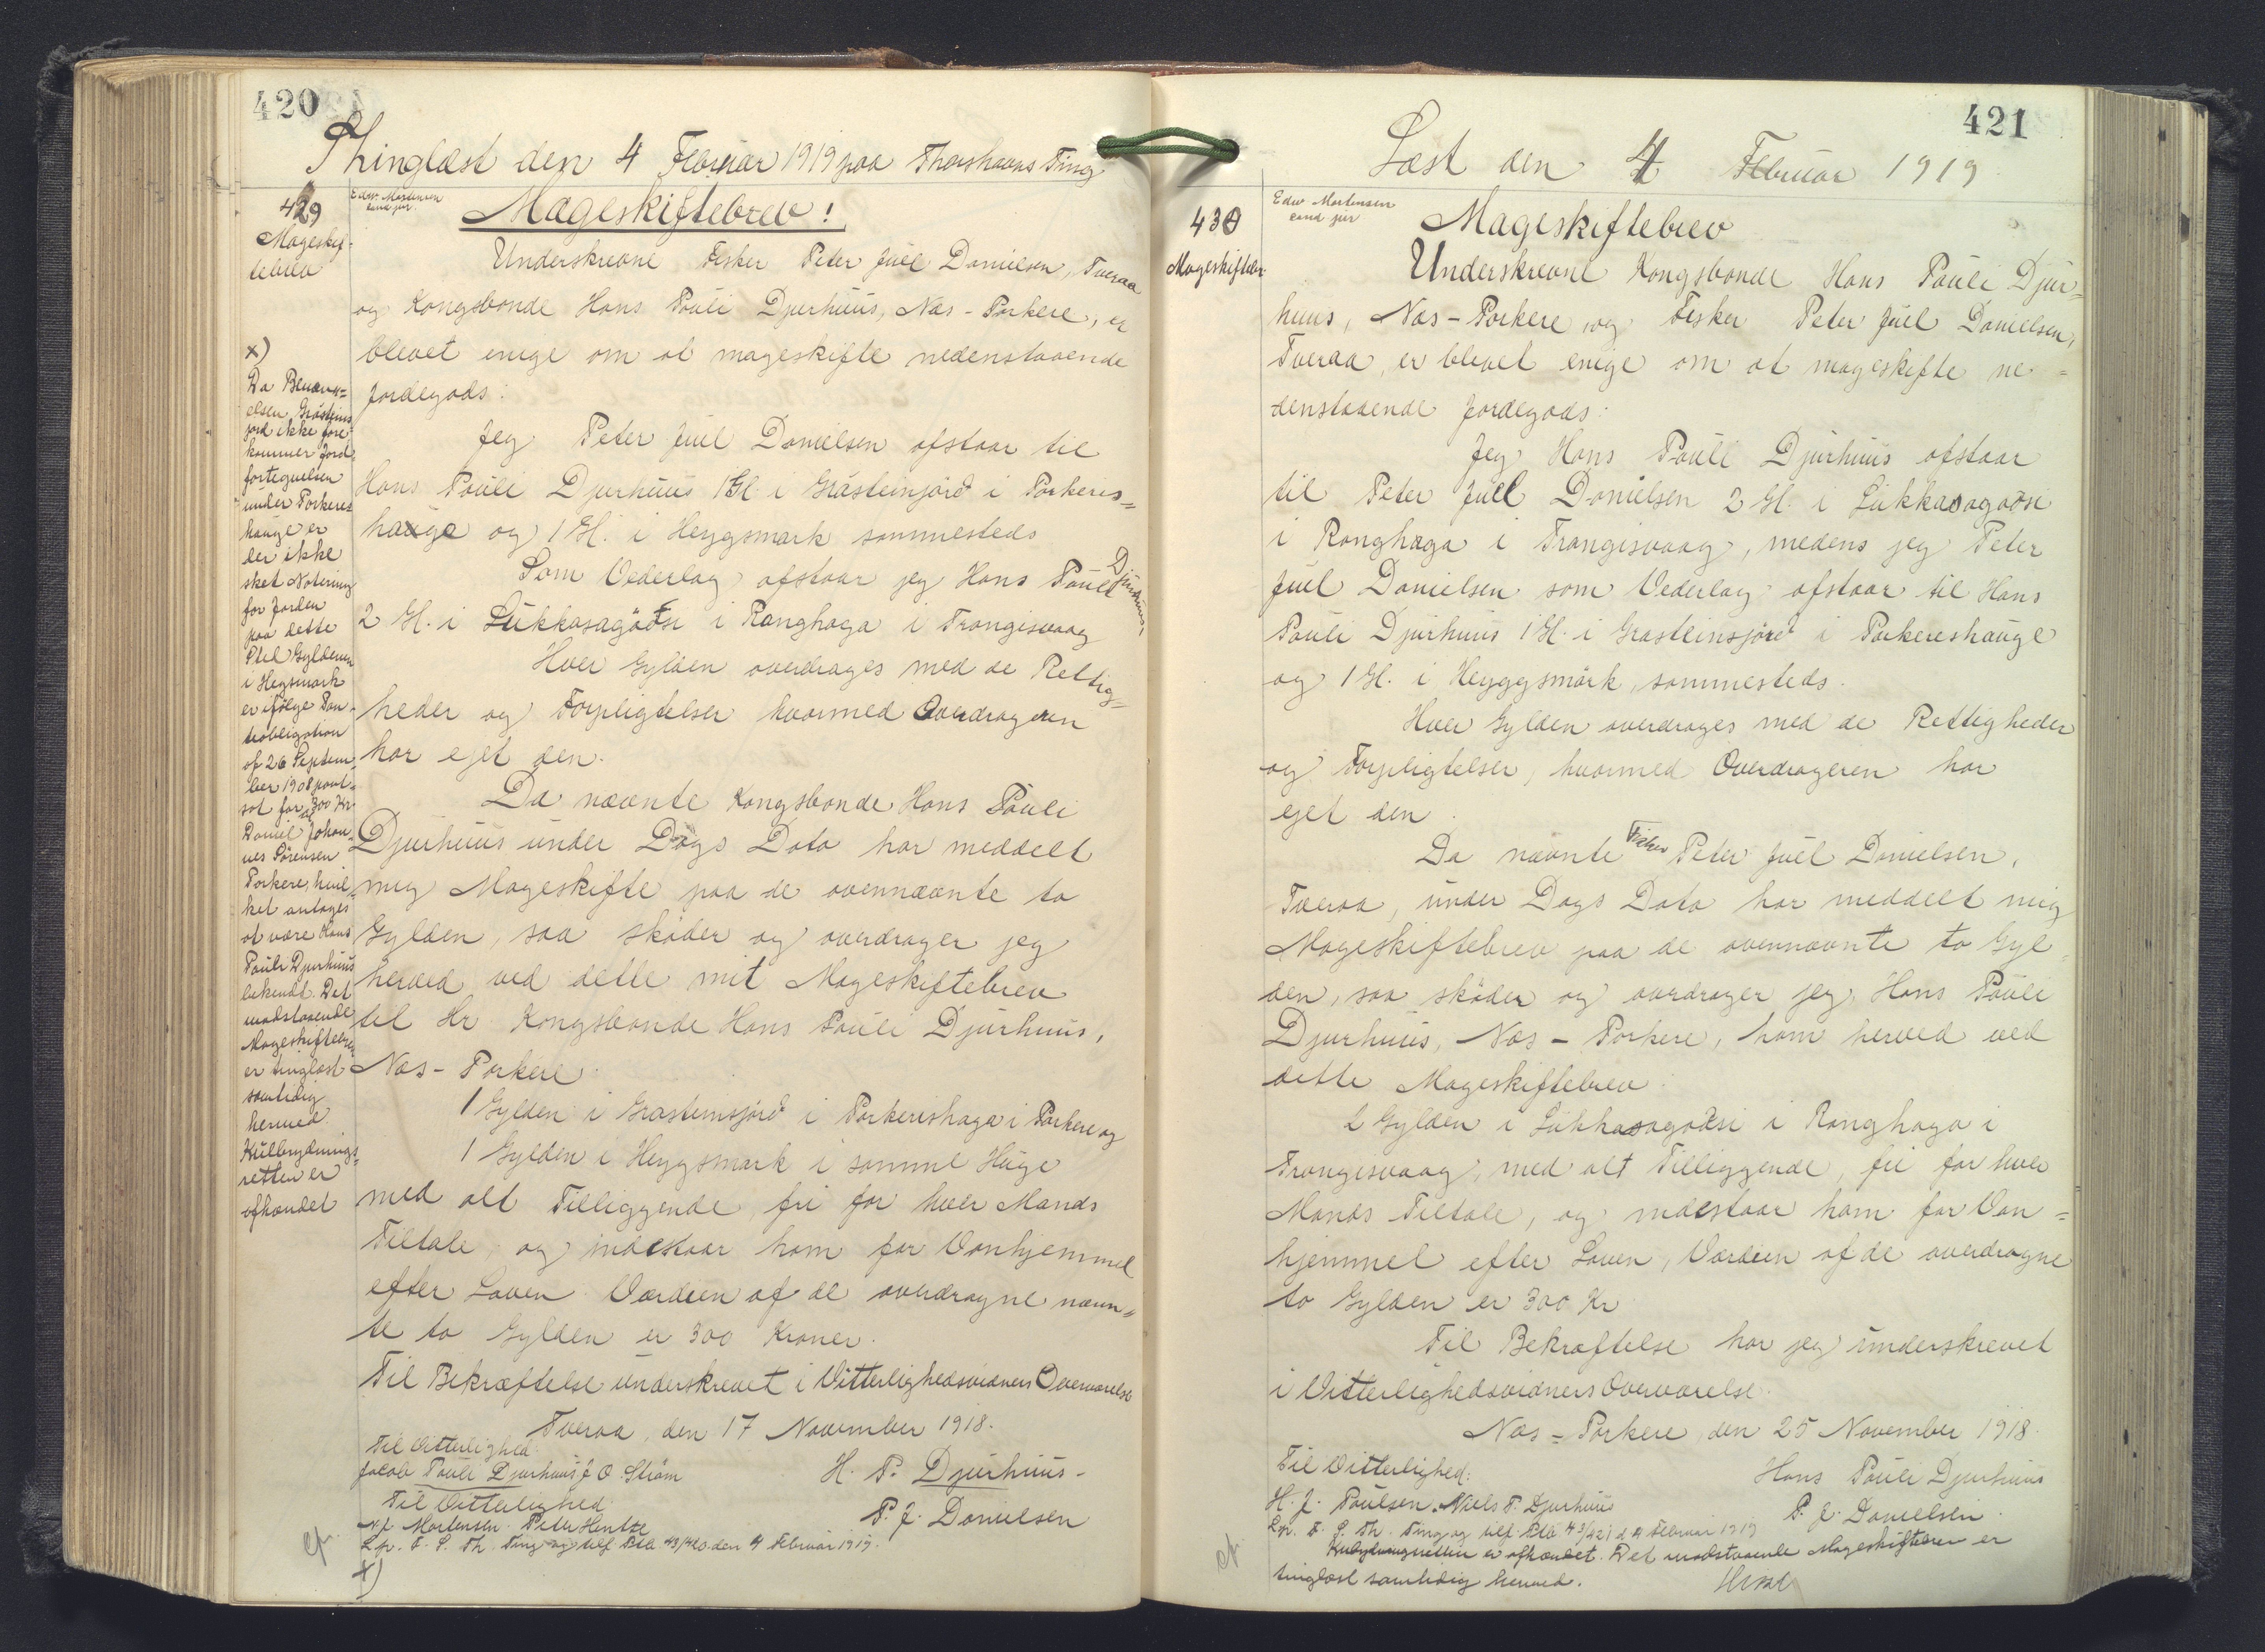 420
Thinglæst den 4 Februar 1919 paa Thorshavns Ting
429
Mageskif-
tebrev
Edw. Mortensen
cand jur.
Mageskiftebrev!
Underskrevne Fisker Peter Juel Danielsen, Tveraa
og Kongsbonde Hans Pauli Djurhuus, Næs - Porkere, er
blevet enige om at mageskifte nedenstaaende
Jordegods:
Jeg Peter Juel Danielsen afstaar til
Hans Pauli Djurhuus 1 Gl. i Grásteinjørð i Porkeres=
hauge og 1 Gl. i Heygsmark sammesteds
Som Vederlag afstaar jeg Hans Pauli Djurhuus
2 Gl. i Lukkasagøtse i Ranghaga i Trangisvaag
Hver Gylden overdrages med de Rettig=
heder og Forpligtelser hvormed Overdrageren
har ejet den.
Da nævnte Kongsbonde Hans Pauli
Djurhuus under Dags Dato har meddelt
mig Mageskifte paa de ovennævnte to
Gylden, saa skøder og overdrager jeg
herved ved dette mit Mageskiftebrev
til Hr. Kongsbonde Hans Pauli Djurhuus,
Næs - Porkere:
1 Gylden i Grasteinsjørð i Porkerishaga i Porkere og
1 Gylden i Heygsmark i samme Hauge
med alt Tilliggende, fri for hver Mands
Tiltale, og indestaar ham for Vanhjemmel
efter Loven. Værdien af de overdragne nævn=
te to Gylden er 300 Kroner.
Til Bekræftelse underskrevet i Vitterlighedsvidners Overværelse
Tveraa, den 17 November 1918.
Til Vitterlighed:
Jacob Pauli Djurhuus J O Strøm
H. P. Djurhuus-
Til Vitterlighed
N. J. Mortensen. Peter Hentze
P. J. Danielsen
Lpr. F. S. Th. Ting og till Ptb 43/420 den 4 Februar 1919.
x)
x)
Da Benævn=
elsen Grásteins
jord ikke fore-
kommer Jord-
fortegnelsen
under Porkeres
hauge er
der ikke
sket Notering
for Jorden
paa dette
Sted Gylden
i Heysmark
er ifølge Pan-
teobligation
af 26 Septem-
ber 1908 pant-
sat for 300 Kr
til
Daniel Johan-
nes Sörensen
Porkere, hvil-
ket antages
at være Hans
Pauli Djurhuus
bekendt. Det
modstaaende
Mageskiftebrev
er tinglæst
samtidig
hermed.
Kulbrydnings-
retten er
afhændet
421
Læst den 4 Februar 1919
430
Mageskiftebr
Edw Mortensen
cand jur
Mageskiftebrev
Underskrevne Kongsbonde Hans Pauli Djur=
huus, Næs - Porkere, og Fisker Peter Juel Danielsen,
Tveraa, er blevet enige om at mageskifte ne=
denstaaende Jordegods:
Jeg Hans Pauli Djurhuus afstaar
til Peter Juel Danielsen 2 Gl. i Lukkasagøtse
i Ranghaga i Trangisvaag, medens jeg Peter
Juel Danielsen som Vederlag afstaar til Hans
Pauli Djurhuus 1 Gl. i Grasteinsjørð i Porkereshauge
og 1 Gl. i Heyggsmørk, sammesteds.
Hver Gylden overdrages med de Rettigheder
og Forpligtelser, hvormed Overdrageren har
ejet den.
Da nævnte Fisker Peter Juel Danielsen,
Tveraa, under Dags Dato har meddelt mig
Mageskiftebrev paa de ovennævnte to Gyl=
den, saa skøder og overdrager jeg, Hans Pauli
Djurhuus, Næs - Porkere, ham herved ved
dette Mageskiftebrev:
2 Gylden i Lukkasagøtse i Ranghaga i
Trangisvaag, med alt Tilliggende, fri for hver
Mands Tiltale, og indestaar ham for Van=
hjemmel efter Loven, Værdien af de overdragne
to Gylden er 300 Kr
Til Bekræftelse har jeg underskrevet
i Vitterlighedsvidners Overværelse.
Næs - Porkere den 25 November 1918.
Til Vitterlighed:
Hans Pauli Djurhuus
H. J. Poulsen. Niels P. Djurhuus
P. J. Danielsen.
Lpr. F. S. Th. Ting og till Ptb 43/421 d 4 Februar 1919
Kulbrydningsretten er afhændet. Det modstaaende Mageskiftebrev er
tinglæst samtidig hermed.